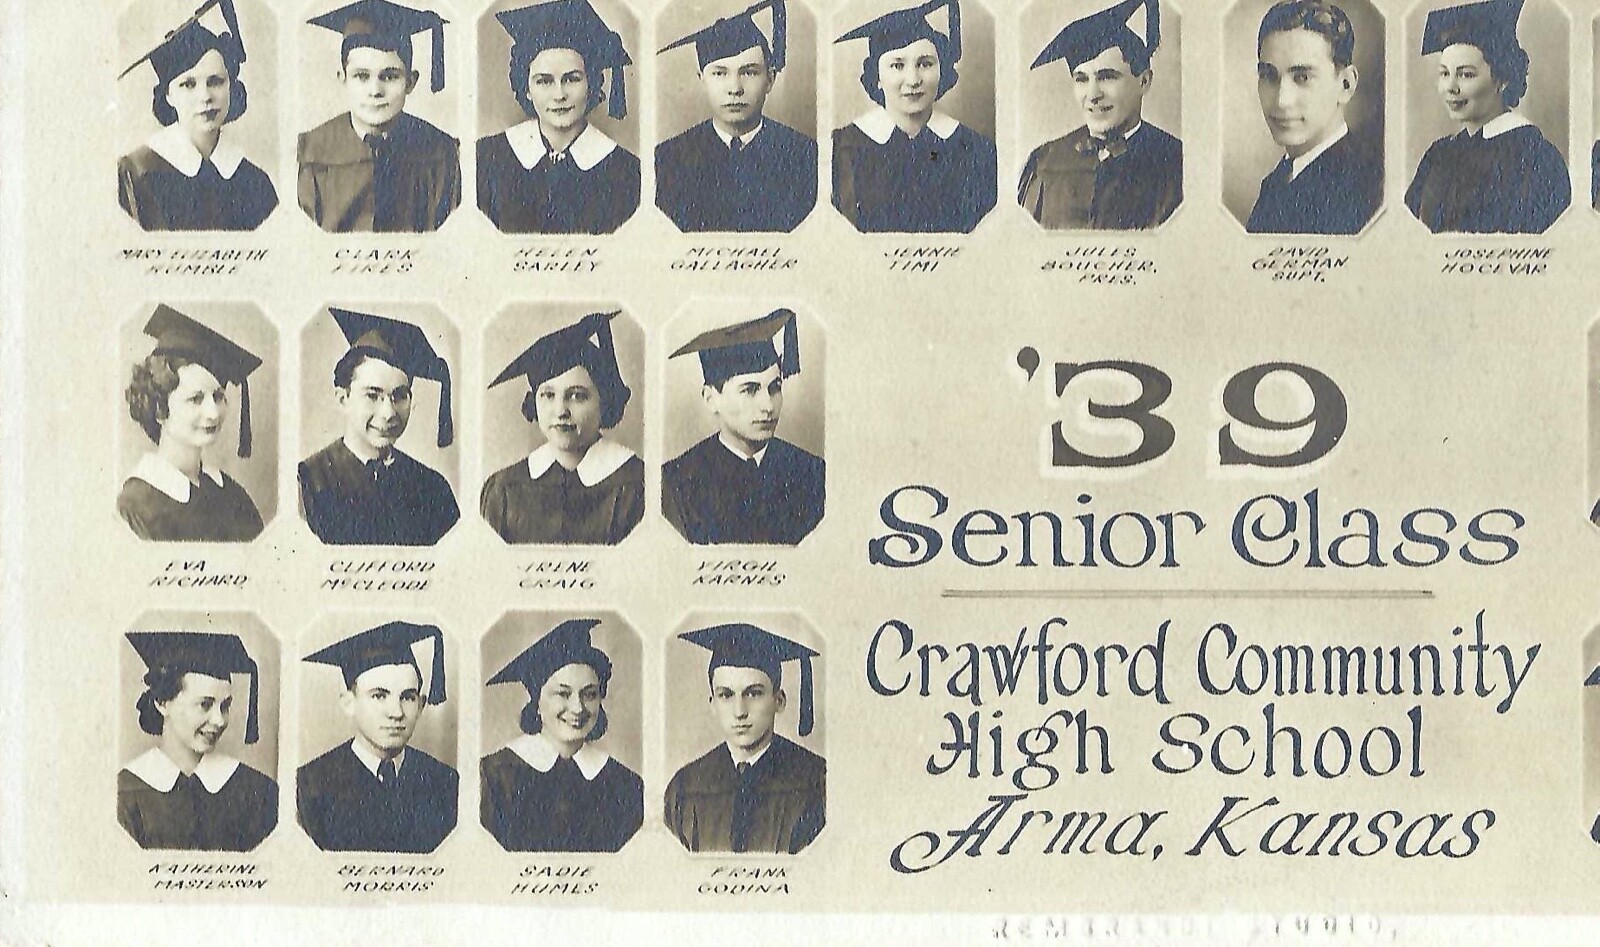 MARY ELIZABETH
RUMBLE
CLARK
FIKES
HELEN
SARLEY
MICHAEL
GALLAGHER
JENNIE
TIMI
JULES
BOUCHER,
PRES.
DAVID
GERMAN
SUPT.
JOSEPHINE
HOCEVAR
EVA
RICHARD
CLIFFORD
McCLEODE
IRENE
CRAIG
VIRGIL
KARNES
'39
Senior Class
Crawford Community
High School
Arma, Kansas
KATHERINE
MASTERSON
BERNARD
MORRIS
SADIE
HUMES
FRANK
GODINA